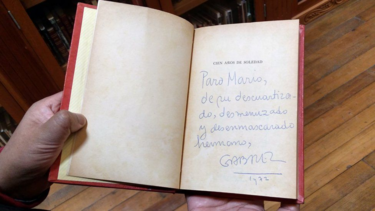 CIEN AÑOS DE SOLEDAD
Para Mario,
de su descuartiza-
do, desmenuzado
y desenmascarado
hermano,
GABRIEL
1972